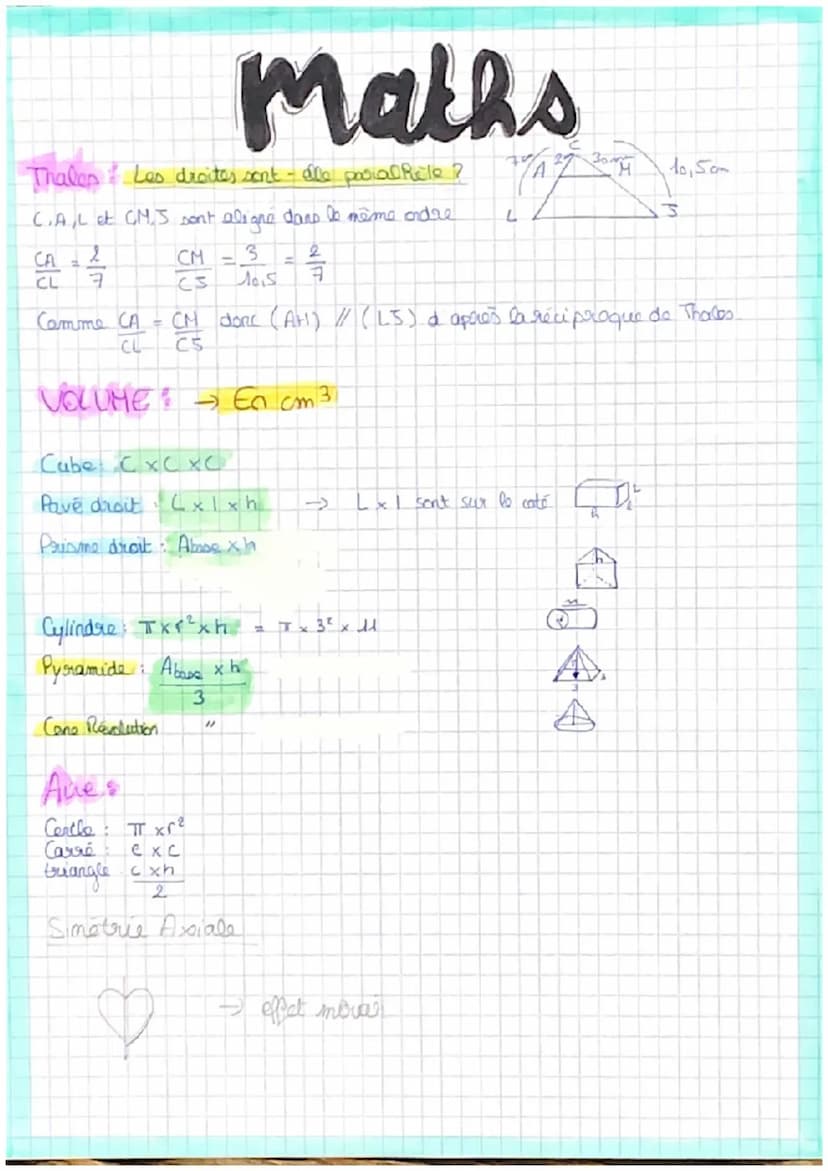 Maths
Thales : Les droites sont-elle parallèle ?
C, A, L et C, M, J sont aligné dans le même ordre
C
A
M
L
J
30mm
10,5cm
CA/CL = 2/7    CM/CJ = 3/10,5 = 2/7
Comme CA/CL = CM/CJ donc (AM) // (LJ) d'après la réciproque de Thales
VOLUME : → En cm³
Cube : C x C x C
Pavé droit : L x l x h → L x l sont sur le coté
L
l
h
Prisme droit : Abase x h
h
Cylindre : π x r² x h = π x 3² x 11
Pyramide : Abase x h / 3
Cone Révolution "
Aire :
Cercle : π x r²
Carré : c x c
triangle c x h / 2
Simétrie Axiale
→ effet miroir